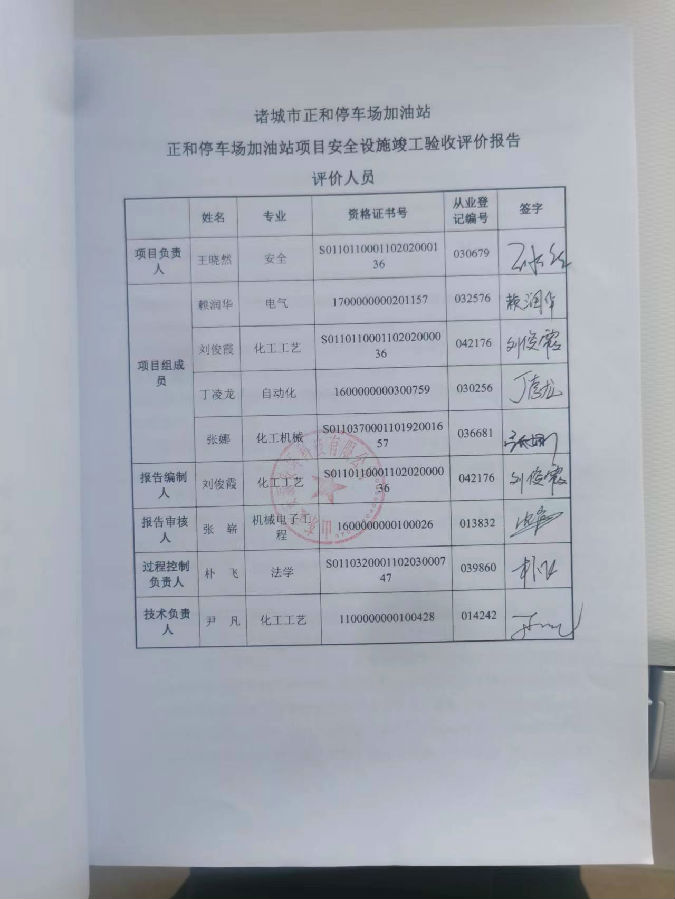 诸城市正和停车场加油站
正和停车场加油站项目安全设施竣工验收评价报告
评价人员
姓名 专业 资格证书号 从业登记编号 签字
项目负责人 王晓然 安全 S011011000110202000136 030679
项目组成员 赖润华 电气 1700000000201157 032576 赖润华
刘俊霞 化工工艺 S011011000110202000036 042176 刘俊霞
丁凌龙 自动化 1600000000300759 030256
张娜 化工机械 S011037000110192001657 036681
报告编制人 刘俊霞 化工工艺 S011011000110202000036 042176 刘俊霞
报告审核人 张 崭 机械电子工程 1600000000100026 013832
过程控制负责人 朴 飞 法学 S011032000110203000747 039860 朴飞
技术负责人 尹 凡 化工工艺 1100000000100428 014242